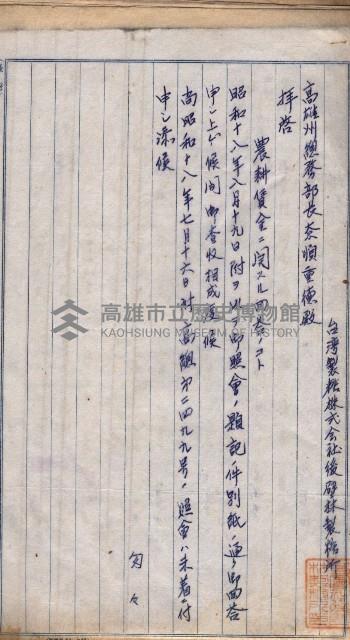 台湾製糖株式会社後壁林製糖所
高雄州總務部長奈須重德殿
拝啓
農耕賃金ニ関スル回答ノコト
昭和十八年八月十九日附ヲ以テ御照會ノ題記ノ件別紙ノ通リ御回答
申シ上ゲ候間御査收相成度候
尚昭和十八年七月十六日附高組第二四九九号ノ照會ハ未着ニ付
申シ添候
匆々
高雄市立歷史博物館
KAOHSIUNG MUSEUM OF HISTORY